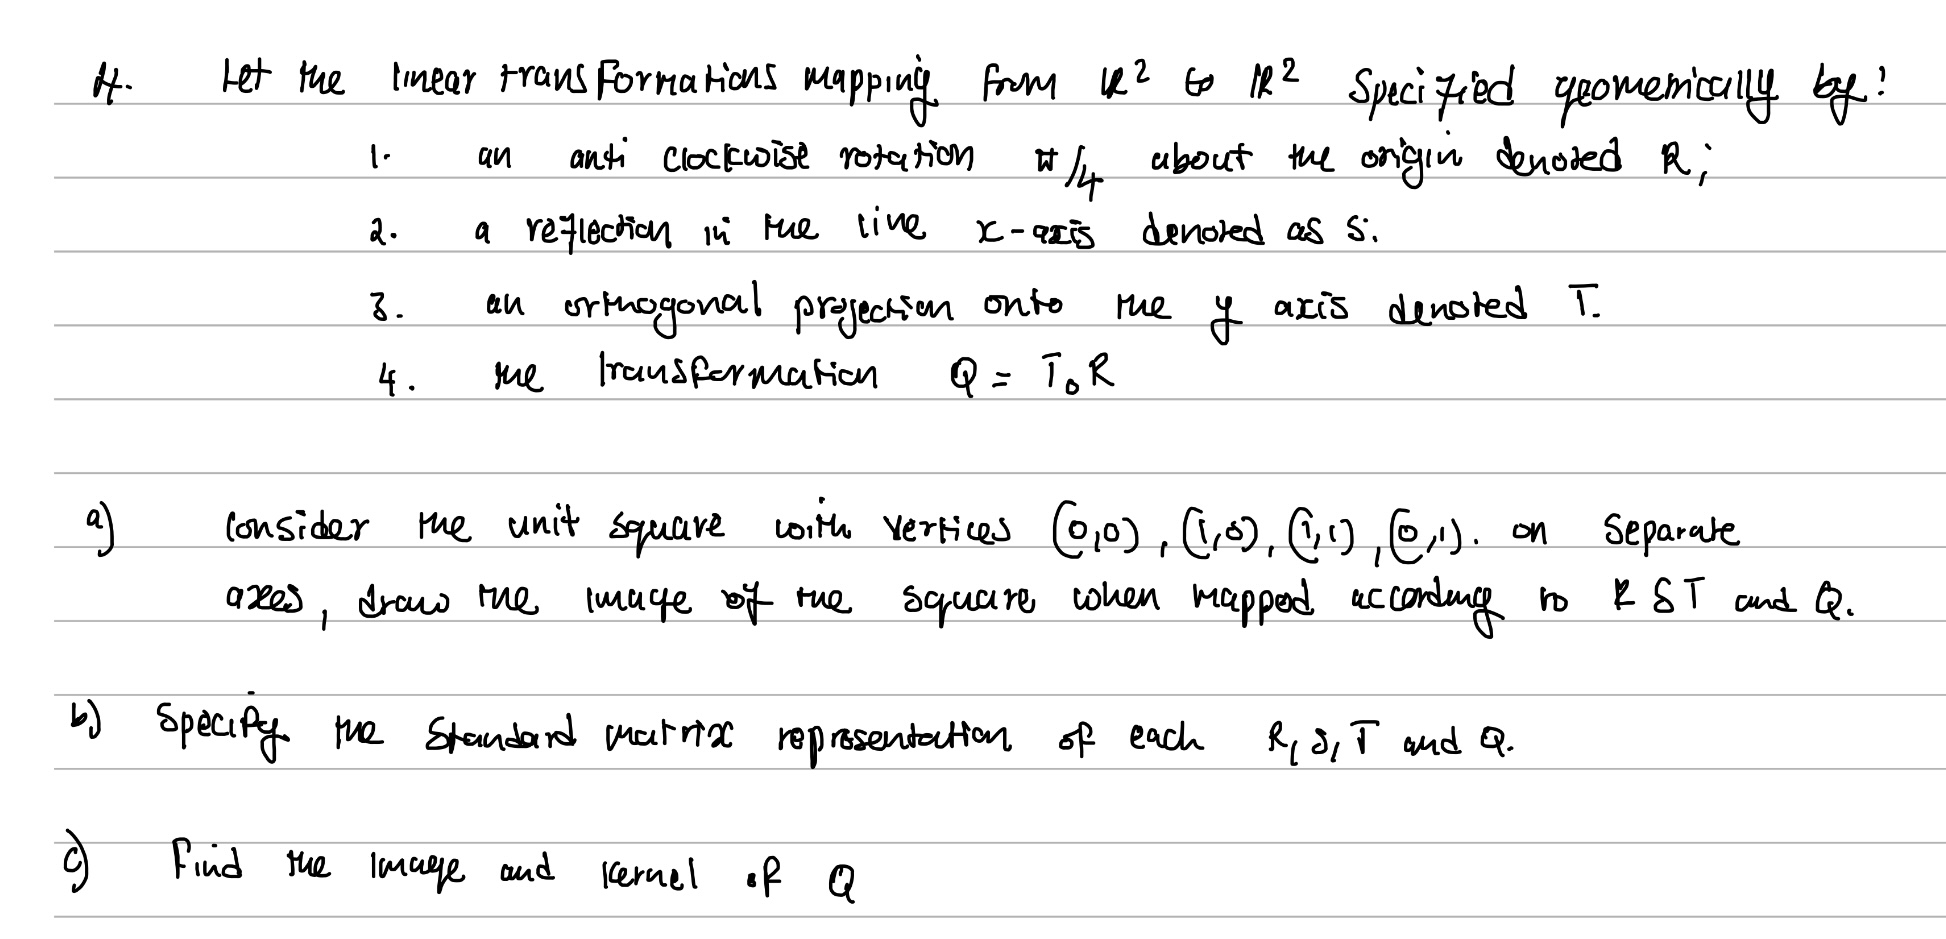 4. Let the linear transformations mapping from ℝ² to ℝ² specified geometrically by:
1. an anti clockwise rotation π/4 about the origin denoted R;
2. a reflection in the line x-axis denoted as S.
3. an orthogonal projection onto the y axis denoted T.
4. the transformation Q = T∘R
a) Consider the unit square with vertices (0,0), (1,0), (1,1), (0,1). on separate
axes, draw the image of the square when mapped according to R S T and Q.
b) Specify the standard matrix representation of each R, S, T and Q.
c) Find the image and kernel of Q